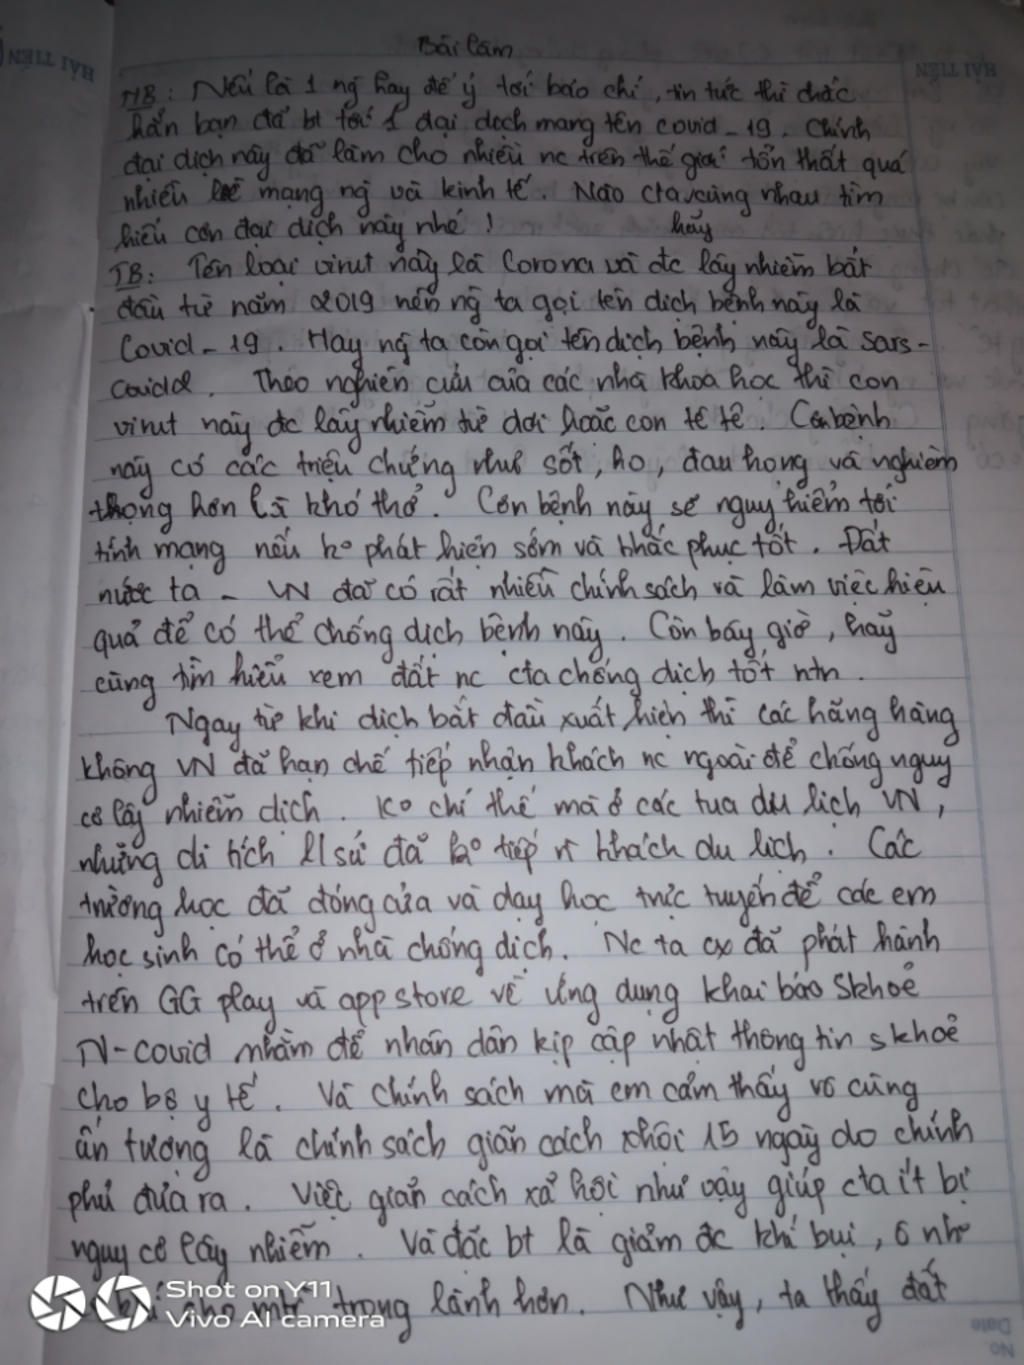 Bài làm
MB: Nếu là 1 ng hay để ý tới báo chí, tin tức thì chắc
hẳn bạn đã bt tới 1 đại dịch mang tên covid-19. Chính
đại dịch này đã làm cho nhiều nc trên thế giới tổn thất quá
nhiều mạng ng và kinh tế. Nào cta cùng nhau tìm
hãy
hiểu con đại dịch này nhé!
TB: Tên loại virut này là Corona và đc lây nhiễm bắt
đầu từ năm 2019 nên ng ta gọi tên dịch bệnh này là
Covid-19. Hay ng ta còn gọi tên dịch bệnh này là sars-
Theo nghiên cứu của các nhà khoa học thì con
virut này đc lây nhiễm từ dơi hoặc con tê tê. Cơn bệnh
này có các triệu chứng như sốt, ho, đau họng và nghiêm
trọng hơn là khó thở. Cơn bệnh này sẽ nguy hiểm tới
tính mạng nếu ko phát hiện sớm và khắc phục tốt. Đất
nước ta - VN đã có rất nhiều chính sách và làm việc hiệu
quả để có thể chống dịch bệnh này. Còn bây giờ, hãy
cùng tìm hiểu xem đất nc cta chống dịch tốt ntn.
Ngay từ khi dịch bắt đầu xuất hiện thì các hãng hàng
không VN đã hạn chế tiếp nhận khách nc ngoài để chống nguy
cơ lây nhiễm dịch. Ko chỉ thế mà ở các tua du lịch VN,
những di tích lịsử đã ko tiếp khách du lịch. Các
trường học đã đóng cửa và dạy học trực tuyến để các em
học sinh có thể ở nhà chống dịch. Nc ta cx đã phát hành
trên GG play và app store về ứng dụng khai báo skhoẻ
N-covid nhằm để nhân dân kịp cập nhật thông tin skhoẻ
cho bộ y tế. Và chính sách mà em cảm thấy vô cùng
ấn tượng là chính sách giãn cách xhội 15 ngày do chính
phủ đưa ra. Việc giãn cách xã hội như vậy giúp cta ít bị
nguy cơ lây nhiễm. Và đặc bt là giảm đc khí bụi, ô nh
cho mtr trong lành hơn. Như vậy, ta thấy đất
Shot on Y11
Vivo AI camera
HẢI TIẾN
HẢI TIẾN
No.
Date